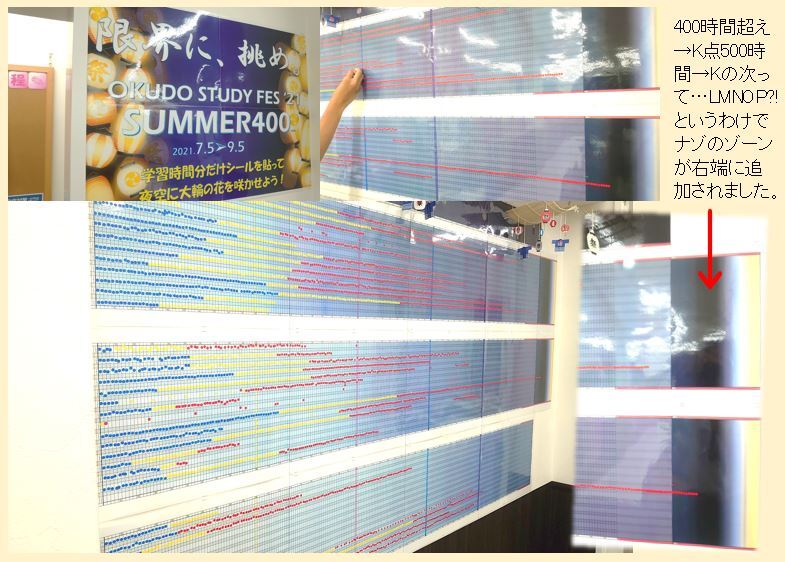 限界に、挑め。
OKUDO STUDY FES '21
SUMMER400
2021. 7.5➢9.5
学習時間分だけシールを貼って
夜空に大輪の花を咲かせよう！
程
祭
400時間超え
→K点500時
間→Kの次っ
て…LMNOP?!
というわけで
ナゾのゾーン
が右端に追
加されました。